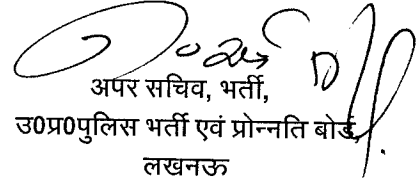 अपर सचिव, भर्ती,
उ0प्र0पुलिस भर्ती एवं प्रोन्नति बोर्ड,
लखनऊ